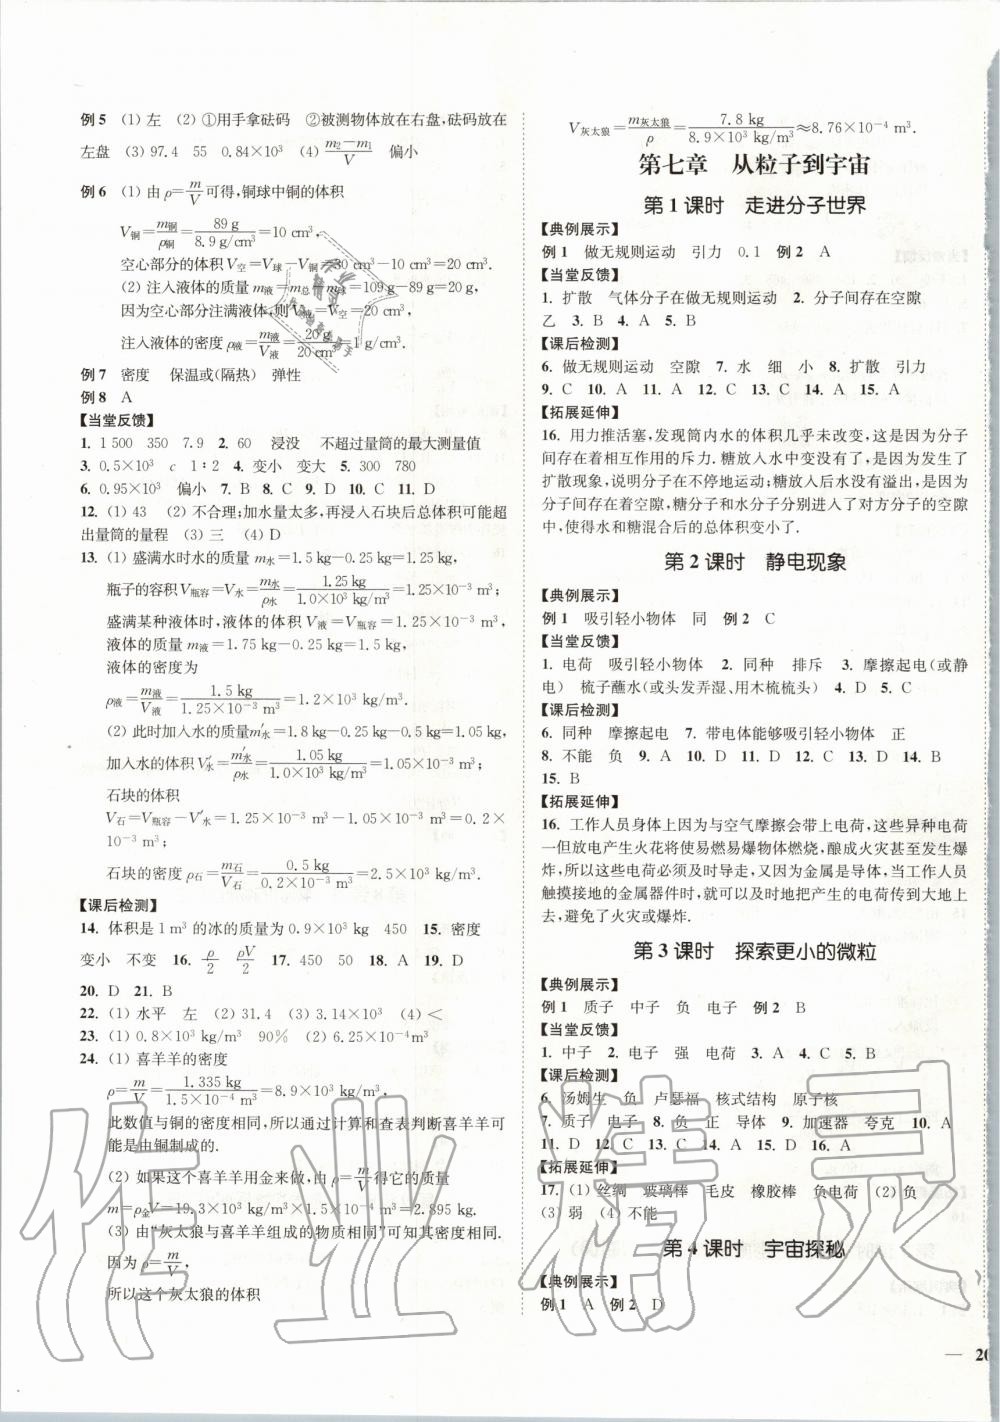 例 5 (1) 左 (2) ①用手拿砝码 ②被测物体放在右盘,砝码放在
左盘 (3) 97.4 55 0.84×10³ (4) (m₂－m₁)/V 偏小
例 6 (1) 由 ρ＝m/V 可得,铜球中铜的体积
V铜＝m铜/ρ铜＝89 g/(8.9 g/cm³)＝10 cm³,
空心部分的体积 V空＝V球－V铜＝30 cm³－10 cm³＝20 cm³.
(2) 注入液体的质量 m液＝m总－m球＝109 g－89 g＝20 g,
因为空心部分注满液体,则 V液＝V空＝20 cm³,
注入液体的密度 ρ液＝m液/V液＝20 g/(20 cm³)＝1 g/cm³.
例 7 密度 保温或(隔热) 弹性
例 8 A
【当堂反馈】
1. 1 500 350 7.9 2. 60 浸没 不超过量筒的最大测量值
3. 0.5×10³ c 1∶2 4. 变小 变大 5. 300 780
6. 0.95×10³ 偏小 7. B 8. C 9. D 10. C 11. D
12. (1) 43 (2) 不合理;加水量太多,再浸入石块后总体积可能超
出量筒的量程 (3) 三 (4) D
13. (1) 盛满水时水的质量 m水＝1.5 kg－0.25 kg＝1.25 kg,
瓶子的容积 V瓶容＝V水＝m水/ρ水＝1.25 kg/(1.0×10³ kg/m³)＝1.25×10⁻³ m³;
盛满某种液体时,液体的体积 V液＝V瓶容＝1.25×10⁻³ m³,
液体的质量 m液＝1.75 kg－0.25 kg＝1.5 kg,
液体的密度为
ρ液＝m液/V液＝1.5 kg/(1.25×10⁻³ m³)＝1.2×10³ kg/m³.
(2) 此时加入水的质量m′水＝1.8 kg－0.25 kg－0.5 kg＝1.05 kg,
加入水的体积 V′水＝m′水/ρ水＝1.05 kg/(1.0×10³ kg/m³)＝1.05×10⁻³ m³;
石块的体积
V石＝V瓶容－V′水＝1.25×10⁻³ m³－1.05×10⁻³ m³＝0.2×
10⁻³ m³;
石块的密度 ρ石＝m石/V石＝0.5 kg/(0.2×10⁻³ m³)＝2.5×10³ kg/m³.
【课后检测】
14. 体积是 1 m³ 的冰的质量为 0.9×10³ kg 450 15. 密度
变小 不变 16. ρ/2 ρV/2 17. 450 50 18. A 19. D
20. D 21. B
22. (1) 水平 左 (2) 31.4 (3) 3.14×10³ (4) ＜
23. (1) 0.8×10³ kg/m³ 90% (2) 6.25×10⁻⁴m³
24. (1) 喜羊羊的密度
ρ＝m/V＝1.335 kg/(1.5×10⁻⁴ m³)＝8.9×10³ kg/m³,
此数值与铜的密度相同,所以通过计算和查表判断喜羊羊可
能是由铜制成的.
(2) 如果这个喜羊羊用金来做,由 ρ＝m/V 得它的质量
m＝ρ金V＝19.3×10³ kg/m³×1.5×10⁻⁴ m³＝2.895 kg.
(3) 由“灰太狼与喜羊羊组成的物质相同”可知它们的密度相同.
因为 ρ＝m/V,
所以这个灰太狼的体积
V灰太狼＝m灰太狼/ρ＝7.8 kg/(8.9×10³ kg/m³)≈8.76×10⁻⁴ m³.
第七章 从粒子到宇宙
第 1 课时 走进分子世界
【典例展示】
例 1 做无规则运动 引力 0.1 例 2 A
【当堂反馈】
1. 扩散 气体分子在做无规则运动 2. 分子间存在空隙
乙 3. B 4. A 5. B
【课后检测】
6. 做无规则运动 空隙 7. 水 细 小 8. 扩散 引力
9. C 10. A 11. A 12. C 13. C 14. A 15. A
【拓展延伸】
16. 用力推活塞,发现筒内水的体积几乎未改变,这是因为分子
间存在着相互作用的斥力.糖放入水中变没了,这是因为发生了
扩散现象,说明分子在不停地运动;糖放入后水没有溢出,是因为
分子间存在着空隙,糖分子和水分子分别进入了对方分子的空隙
中,使得水和糖混合后的总体积变小了.
第 2 课时 静电现象
【典例展示】
例 1 吸引轻小物体 同 例 2 C
【当堂反馈】
1. 电荷 吸引轻小物体 2. 同种 排斥 3. 摩擦起电(或静
电) 梳子蘸水(或头发弄湿、用木梳梳头) 4. D 5. C
【课后检测】
6. 同种 摩擦起电 7. 带电体能够吸引轻小物体 正
8. 不能 负 9. A 10. D 11. D 12. A 13. D 14. D
15. B
【拓展延伸】
16. 工作人员身上因为与空气摩擦会带上电荷,这些异种电荷
一但放电产生火花将使易燃易爆物体燃烧,酿成火灾或发生爆
炸,所以这些电荷必须及时导走,因为金属是导体,当工作人员
触摸接地的金属器件时,就可以把产生的电荷传到大地上
去,避免了火灾或爆炸.
第 3 课时 探索更小的微粒
【典例展示】
例 1 质子 中子 负 电子 例 2 B
【当堂反馈】
1. 中子 2. 电子 强 电荷 3. A 4. C 5. A
【课后检测】
6. 汤姆生 负 卢瑟福 核式结构 原子核
7. 质子 电子 8. 负 正 导体 9. 加速器 夸克 10. A
11. D 12. C 13. C 14. A 15. D 16. A
【拓展延伸】
17. (1) 丝绸 玻璃棒 毛皮 橡胶棒 负电荷 (2) 负
(3) 弱 (4) 不能
第 4 课时 宇宙探秘
【典例展示】
例 1 A 例 2 D
— 20
作业精灵